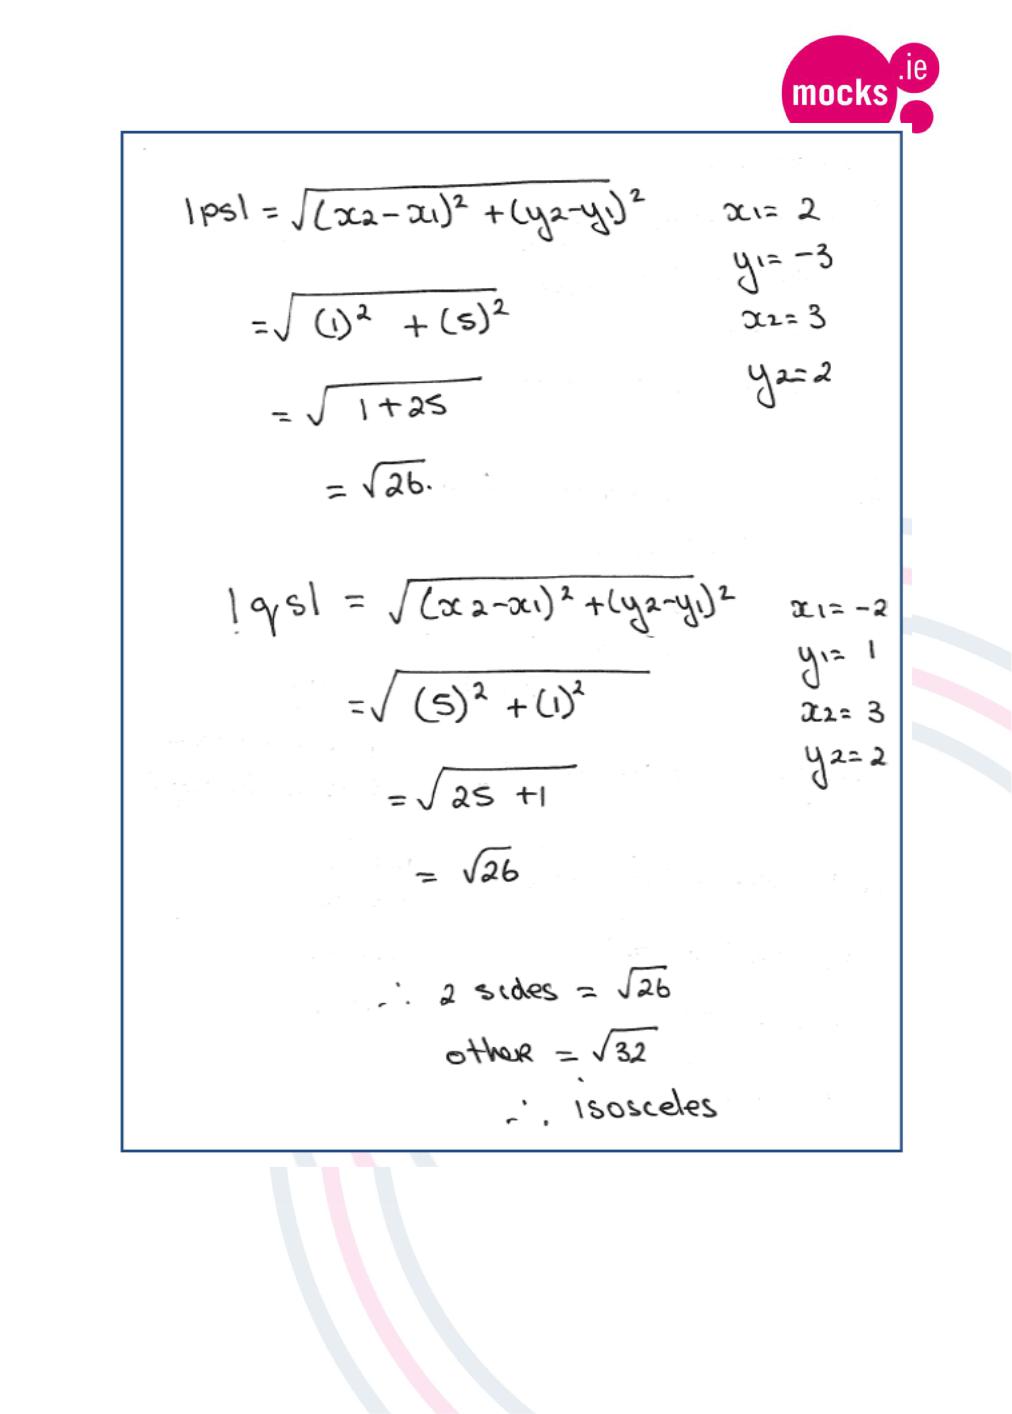 mocks.ie
|ps| = √(x2-x1)² + (y2-y1)² x1= 2
y1= -3
= √(1)² + (5)² x2= 3
= √1+25 y2= 2
= √26.
|qs| = √(x2-x1)² + (y2-y1)² x1= -2
y1= 1
= √(5)² + (1)² x2= 3
y2= 2
= √25 +1
= √26
∴ 2 sides = √26
other = √32
∴ isosceles